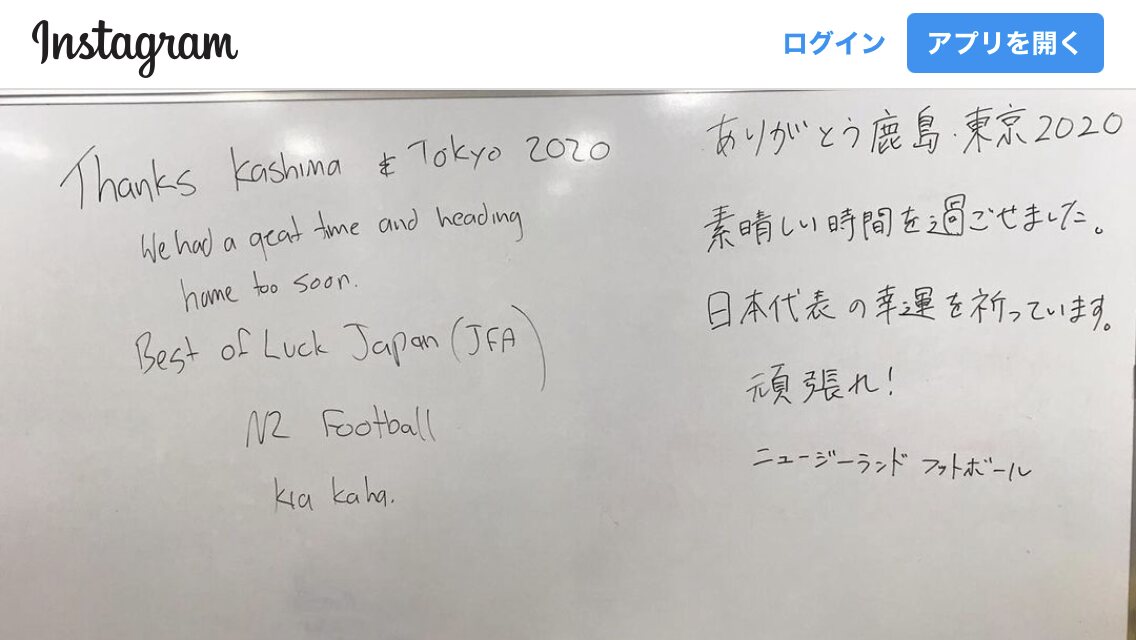 Instagram
ログイン
アプリを開く
Thanks Kashima & Tokyo 2020
We had a great time and heading
home too soon.
Best of Luck Japan (JFA)
NZ Football
kia kaha.
ありがとう鹿島・東京2020
素晴しい時間を過ごせました。
日本代表の幸運を祈っています。
頑張れ!
ニュージーランド フットボール